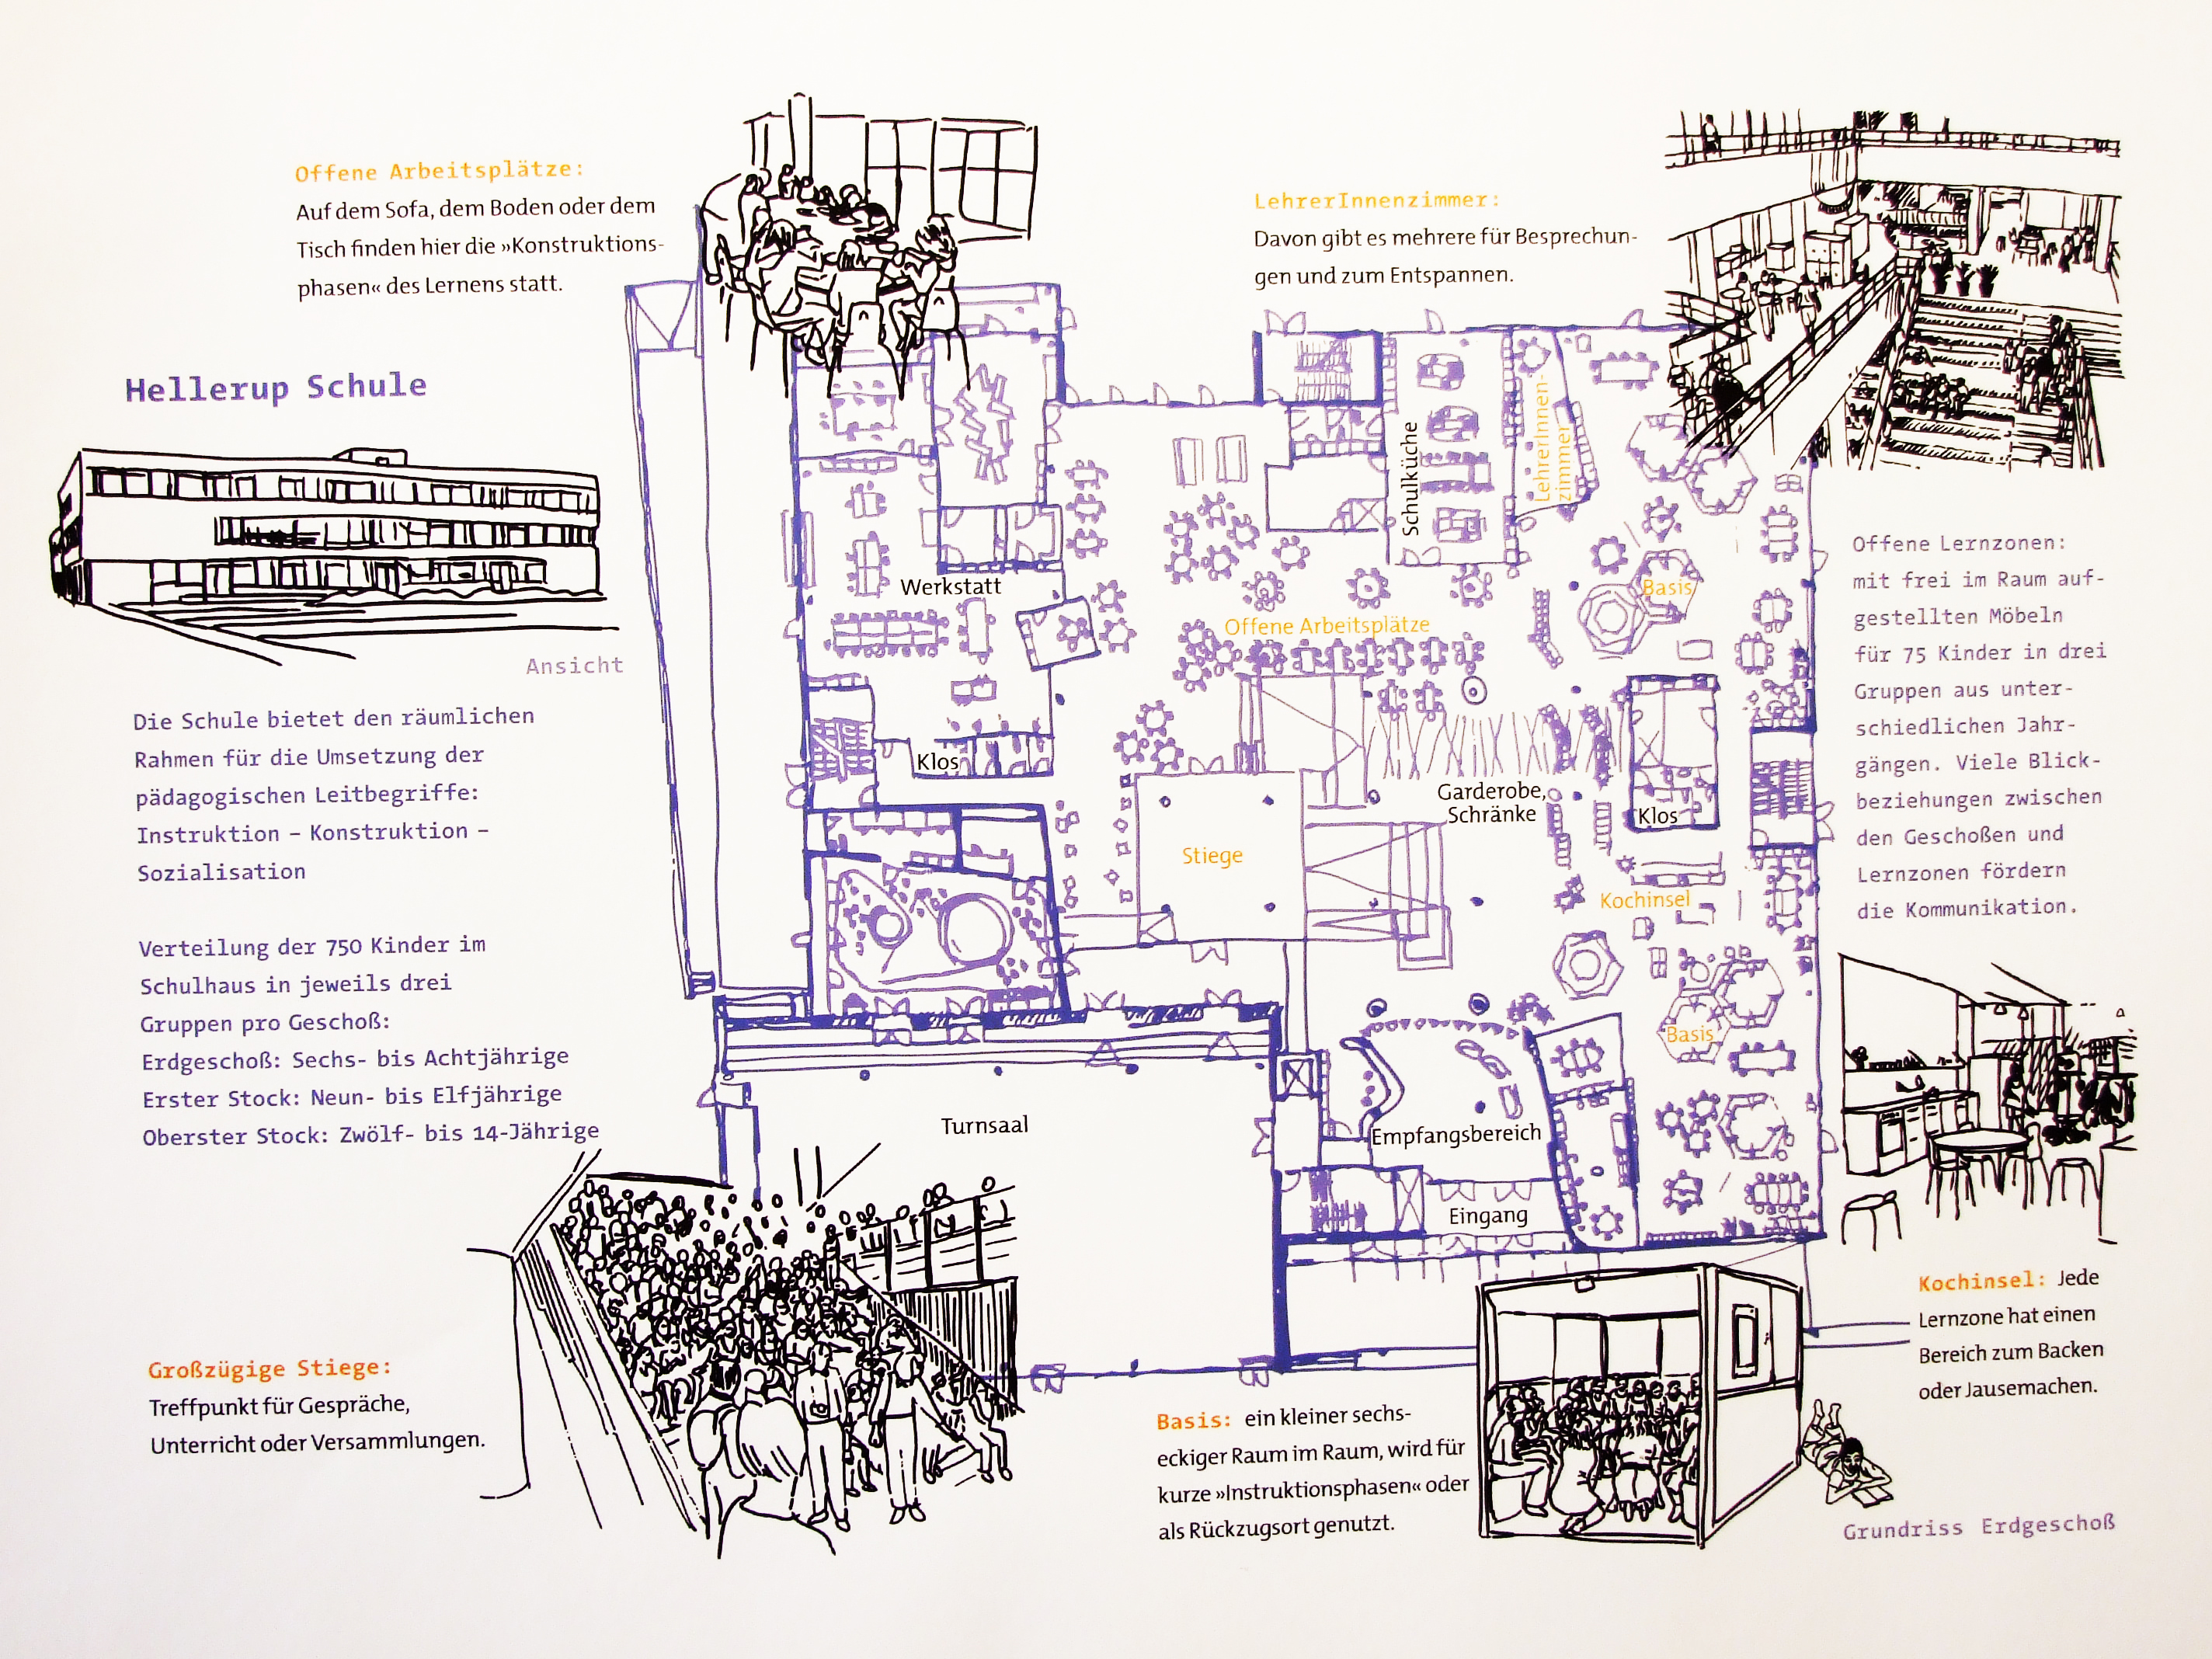 Offene Arbeitsplätze:
Auf dem Sofa, dem Boden oder dem
Tisch finden hier die »Konstruktions-
phasen« des Lernens statt.
LehrerInnenzimmer:
Davon gibt es mehrere für Besprechun-
gen und zum Entspannen.
Hellerup Schule
Ansicht
Die Schule bietet den räumlichen
Rahmen für die Umsetzung der
pädagogischen Leitbegriffe:
Instruktion – Konstruktion –
Sozialisation
Verteilung der 750 Kinder im
Schulhaus in jeweils drei
Gruppen pro Geschoß:
Erdgeschoß: Sechs- bis Achtjährige
Erster Stock: Neun- bis Elfjährige
Oberster Stock: Zwölf- bis 14-Jährige
Großzügige Stiege:
Treffpunkt für Gespräche,
Unterricht oder Versammlungen.
Werkstatt
Klos
Schulküche
LehrerInnen-
zimmer
Basis
Offene Arbeitsplätze
Garderobe,
Schränke
Klos
Stiege
Kochinsel
Basis
Turnsaal
Empfangsbereich
Eingang
Offene Lernzonen:
mit frei im Raum auf-
gestellten Möbeln
für 75 Kinder in drei
Gruppen aus unter-
schiedlichen Jahr-
gängen. Viele Blick-
beziehungen zwischen
den Geschoßen und
Lernzonen fördern
die Kommunikation.
Kochinsel: Jede
Lernzone hat einen
Bereich zum Backen
oder Jausemachen.
Basis: ein kleiner sechs-
eckiger Raum im Raum, wird für
kurze »Instruktionsphasen« oder
als Rückzugsort genutzt.
Grundriss Erdgeschoß